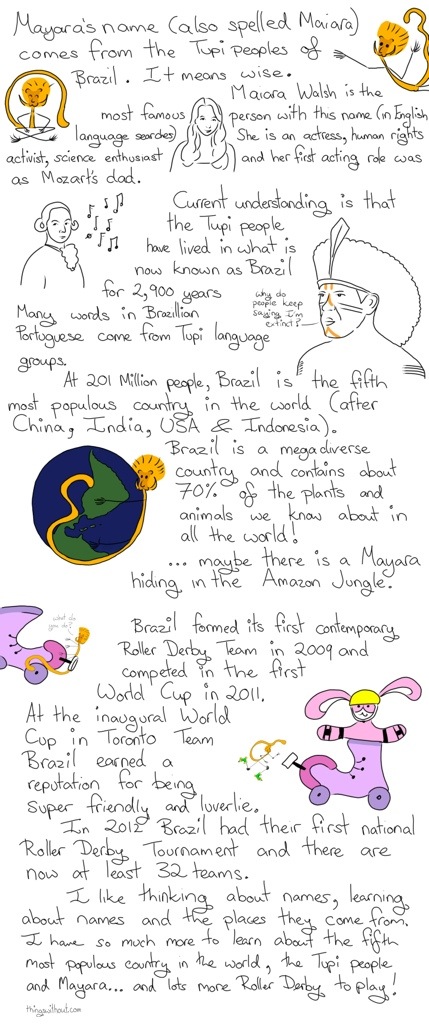 Mayara's name (also spelled Maiara)
comes from the Tupi peoples of
Brazil. It means wise.
Maiara Walsh is the
most famous person with this name (in English
language searches) She is an actress, human rights
activist, science enthusiast and her first acting role was
as Mozart's dad.
Current understanding is that
the Tupi people
have lived in what is
now known as Brazil
for 2,900 years
why do
people keep
saying I'm
extinct?
Many words in Brazillian
Portuguese come from Tupi language
groups.
At 201 Million people, Brazil is the fifth
most populous country in the world (after
China, India, USA & Indonesia).
Brazil is a megadiverse
country and contains about
70% of the plants and
animals we know about in
all the world!
... maybe there is a Mayara
hiding in the Amazon Jungle.
what do
you do?
Brazil formed its first contemporary
Roller Derby Team in 2009 and
competed in the first
World Cup in 2011.
At the inaugural World
Cup in Toronto Team
Brazil earned a
reputation for being
super friendly and luverlie.
In 2012 Brazil had their first national
Roller Derby Tournament and there are
now at least 32 teams.
I like thinking about names, learning
about names and the places they come from.
I have so much more to learn about the fifth
most populous country in the world, the Tupi people
and Mayara... and lots more Roller Derby to play!
thingswithout.com